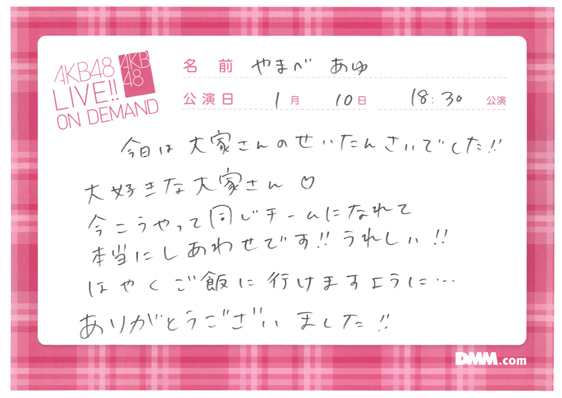 AKB48
LIVE!!
ON DEMAND
AKB
48
名 前 やまべ あゆ
公演日 1月 10日 18:30 公演
今日は大家さんのせいたんさいでした!!
大好きな大家さん♡
今こうやって同じチームになれて
本当にしあわせです!! うれしい!!
はやくご飯に行けますように…
ありがとうございました!!
DMM.com